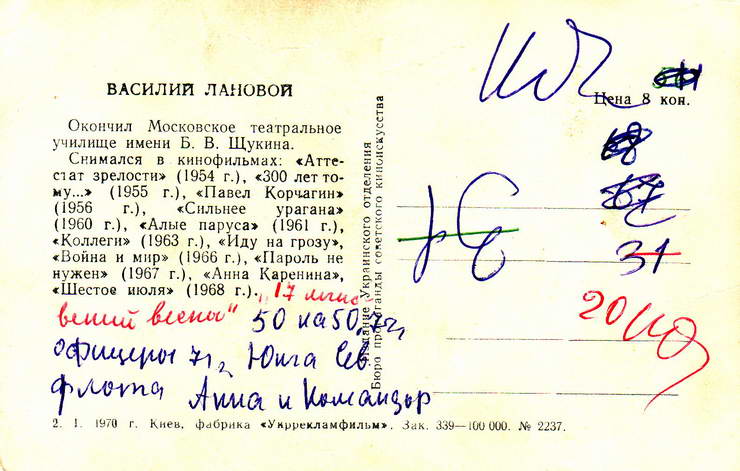 ВАСИЛИЙ ЛАНОВОЙ
Окончил Московское театральное
училище имени Б. В. Щукина.
Снимался в кинофильмах: «Атте-
стат зрелости» (1954 г.), «300 лет то-
му...» (1955 г.), «Павел Корчагин»
(1956 г.), «Сильнее урагана»
(1960 г.), «Алые паруса» (1961 г.),
«Коллеги» (1963 г.), «Иду на грозу»,
«Война и мир» (1966 г.), «Пароль не
нужен» (1967 г.), «Анна Каренина»,
«Шестое июля» (1968 г.).
„17 мгно-
вений весны"
50 на 50
офицеры 71г, Юнга Сев
флота Анна и Командор
2. 1. 1970 г. Киев, фабрика «Укррекламфильм». Зак. 339—100 000. № 2237.
Издание Украинского отделения
Бюро пропаганды советского киноискусства
Цена 8 коп.
31
20